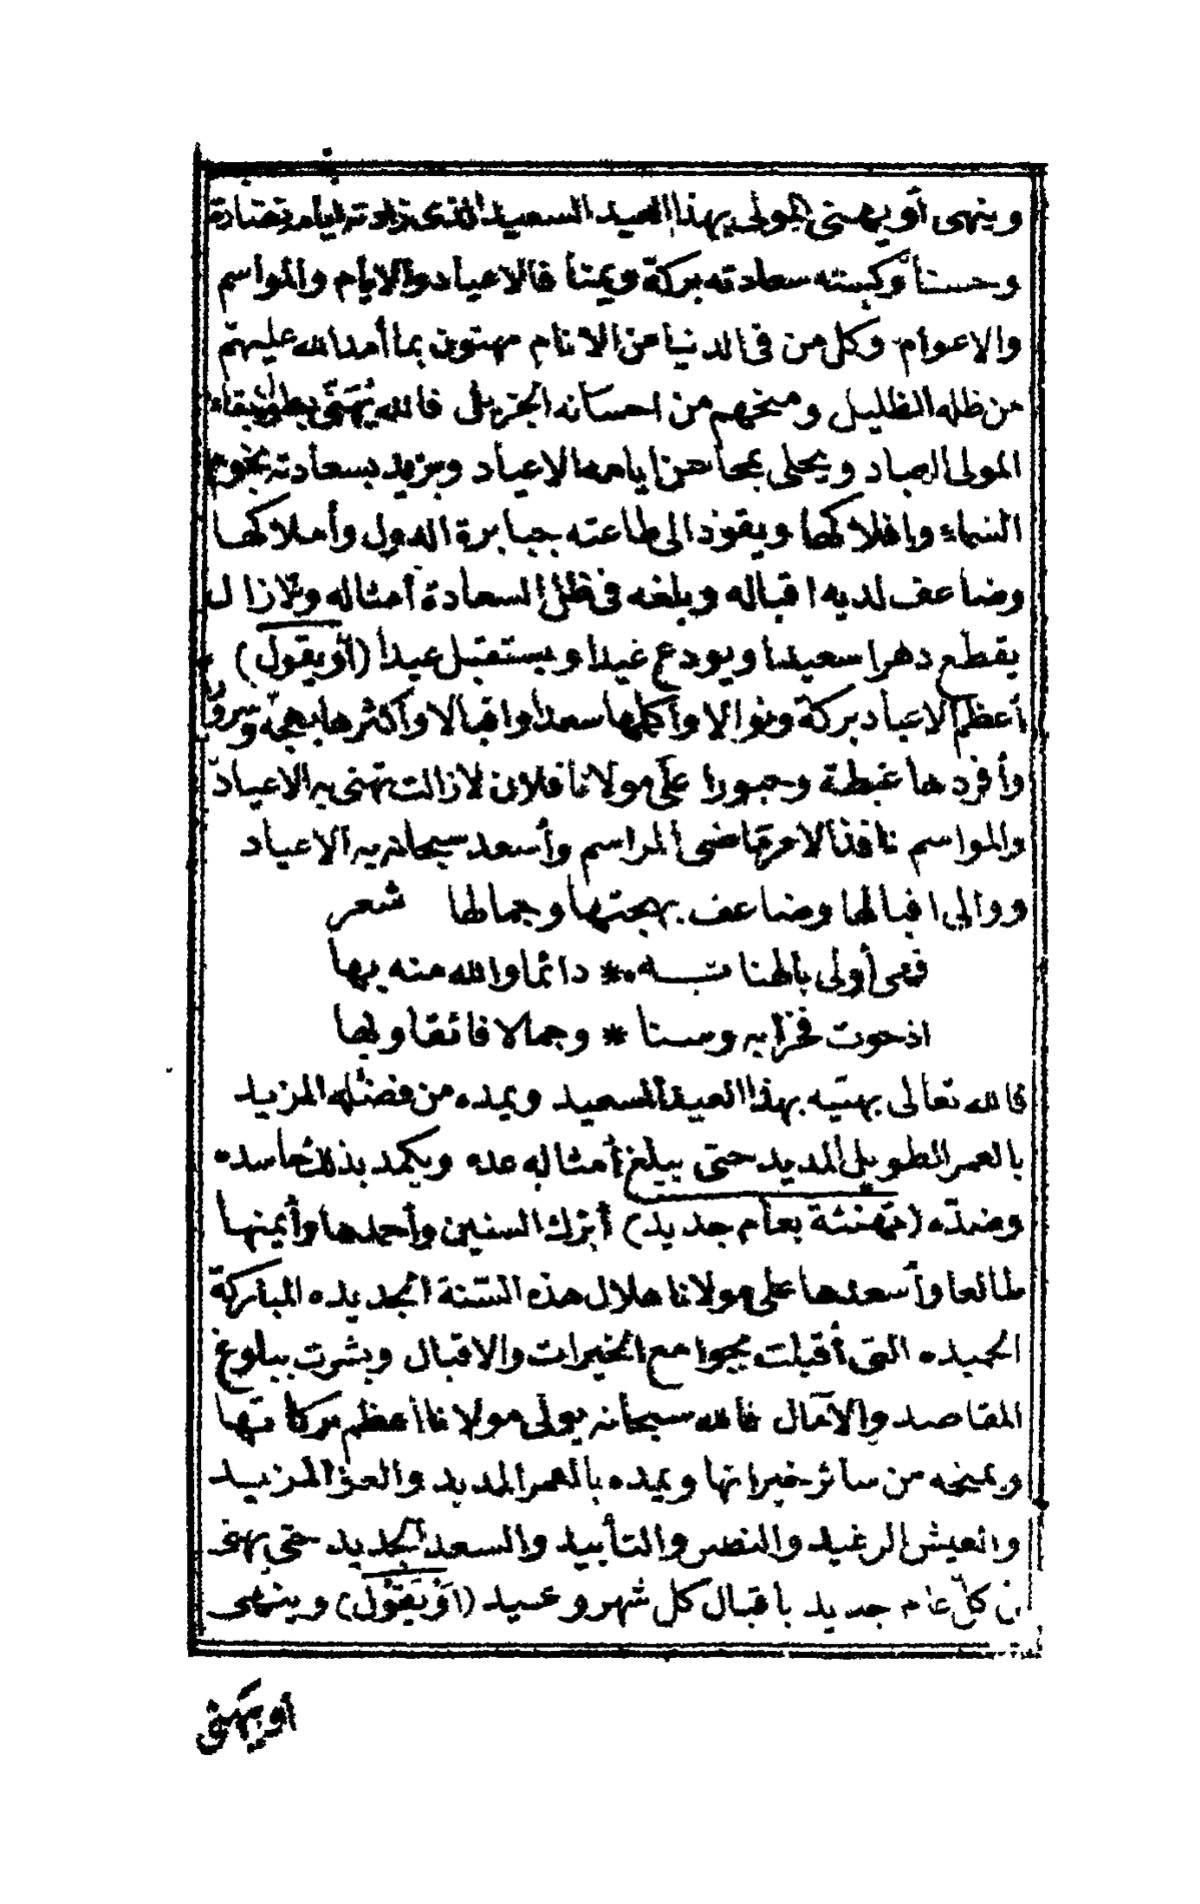 وينهى أو يهنى المولى بهذا العيد السعيد الذى زادت أيامه نضارة
وحسنا وكسته سعادته بركة ويمنا فالاعياد والايام والمواسم
والاعوام وكل من فى الدنيا من الانام مهنون بما أمد الله عليهم
من ظله الظليل ومنحهم من احسانه الجزيل فالله يهنى بطول بقاء
المولى العباد ويحلى بمحاسن أيامه الاعياد ويزيد بسعادته نجوم
السماء وافلاكها ويقود الى طاعته جبابرة الدول وأملاكها
وضاعف لديه اقباله وبلغه فى ظل السعادة أمثاله ولازال
يقطع دهرا سعيدا ويودع عيدا ويستقبل عيدا (أو يقول)
أعظم الاعياد بركة ونوالا وأكملها سعدا واقبالا وأكثرها بهجة وسرورا
وأفردها غبطة وحبورا على مولانا فلان لازالت تهنى به الاعياد
والمواسم نافذ الامر ماضى المراسم وأسعد سبحانه به الاعياد
ووالى اقبالها وضاعف بهجتها وجمالها شعر
فهى أولى بالهنا منه * دائما والله منه بها
اذ حوت فخرا به وسنا * وجمالا فائقا وبها
فالله تعالى يهنيه بهذا العيد السعيد ويمده من فضله المزيد
بالعمر الطويل المديد حتى يبلغ أمثاله عده ويكمد بذلك حاسده
وضده (تهنئة بعام جديد) أبرك السنين وأحمدها وأيمنها
طالعا وأسعدها على مولانا هلال هذه السنة الجديده المباركة
الحميده التى أقبلت مع الخيرات والاقبال وبشرت ببلوغ
المقاصد والآمال فالله سبحانه يولى مولانا أعظم بركاتها
ويمنحه من سائر خيراتها ويمده بالعمر المديد والعز المزيد
والعيش الرغيد والنصر والتأييد والسعد الجديد حتى يهنى
فى كل عام جديد باقبال كل شهر وعيد (أو يقول) وينهى
أو يهنى